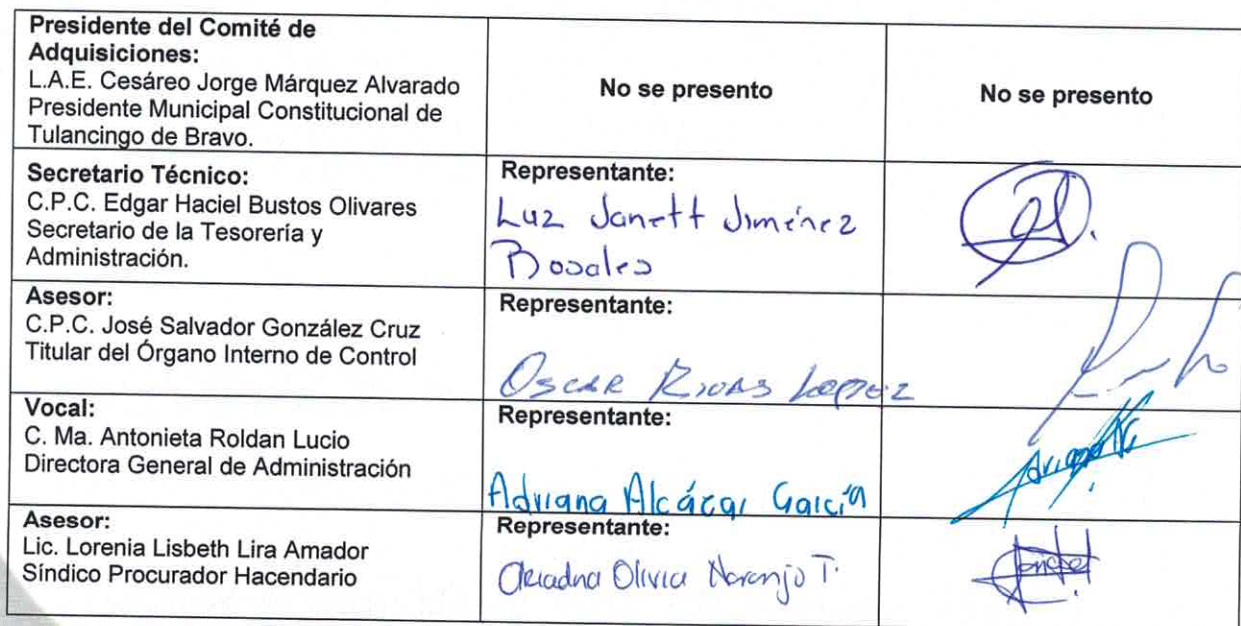 Presidente del Comité de
Adquisiciones:
L.A.E. Cesáreo Jorge Márquez Alvarado
Presidente Municipal Constitucional de
Tulancingo de Bravo.
No se presento
No se presento
Secretario Técnico:
C.P.C. Edgar Haciel Bustos Olivares
Secretario de la Tesorería y
Administración.
Representante:
Luz Janett Jiménez
Rosales
Asesor:
C.P.C. José Salvador González Cruz
Titular del Órgano Interno de Control
Representante:
Oscar Rivas Lopez
Vocal:
C. Ma. Antonieta Roldan Lucio
Directora General de Administración
Representante:
Adriana Alcácar García
Asesor:
Lic. Lorenia Lisbeth Lira Amador
Síndico Procurador Hacendario
Representante:
Ariadna Olivia Naranjo T.